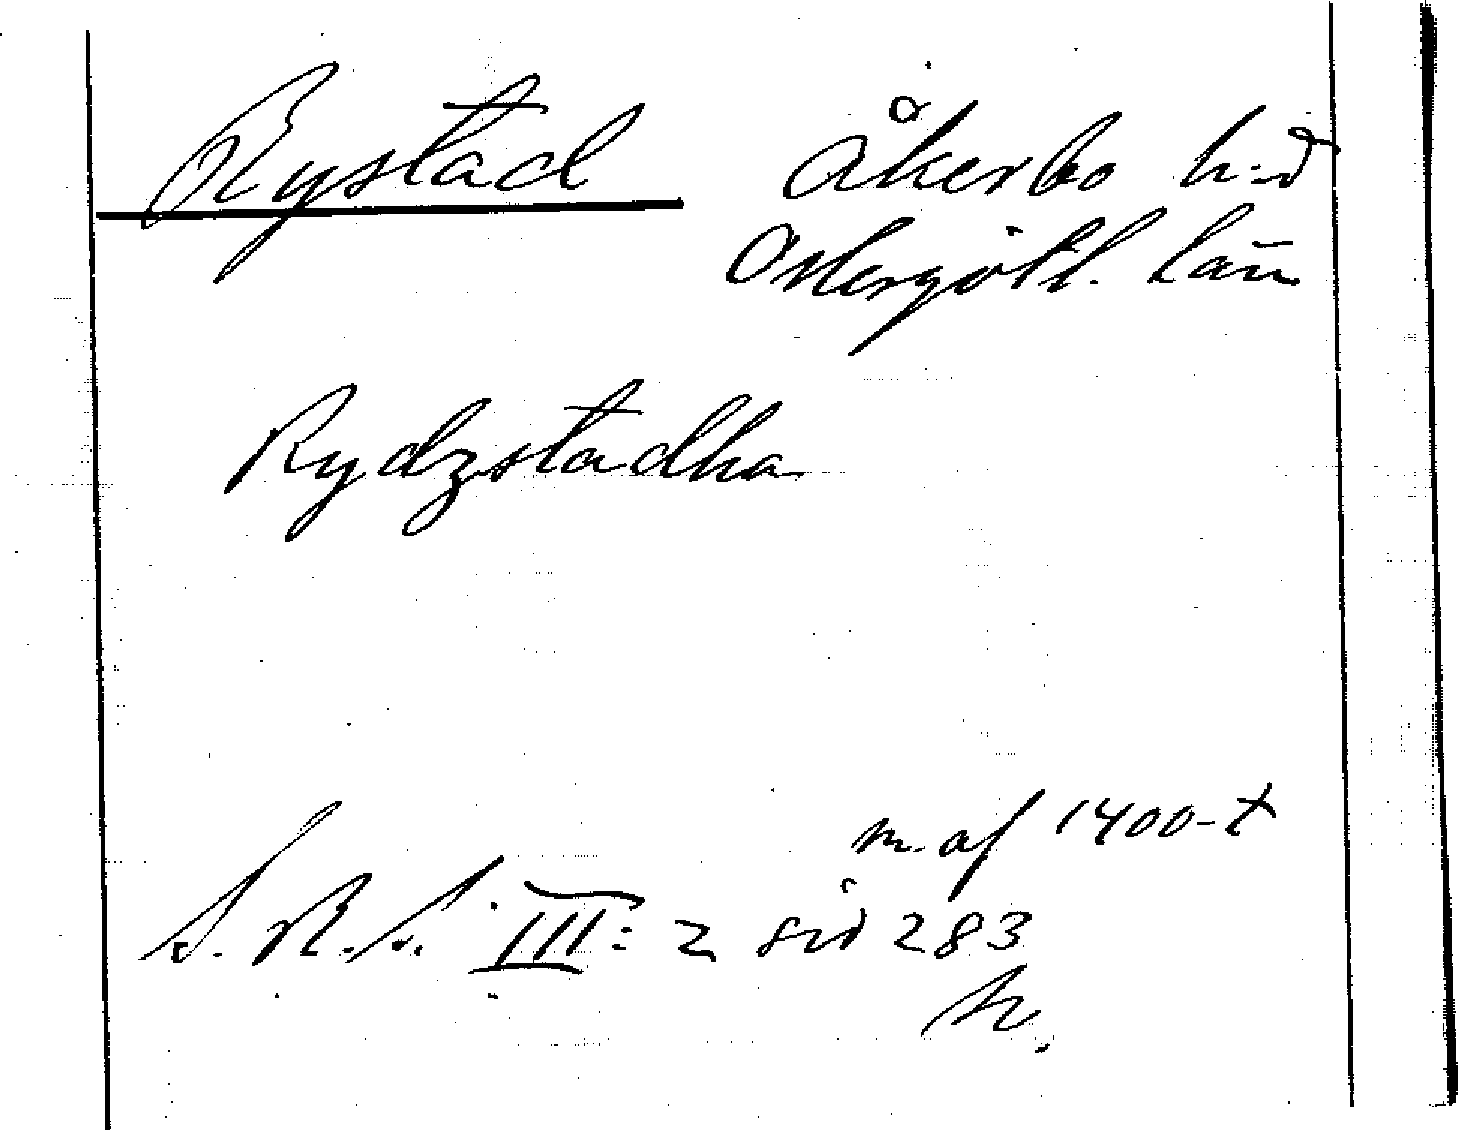 Rystad Åkerbo h-d
Östergötl. län
Rydzstadha
m. af 1400-t
S. R. S. III: 2 sid 283
h.